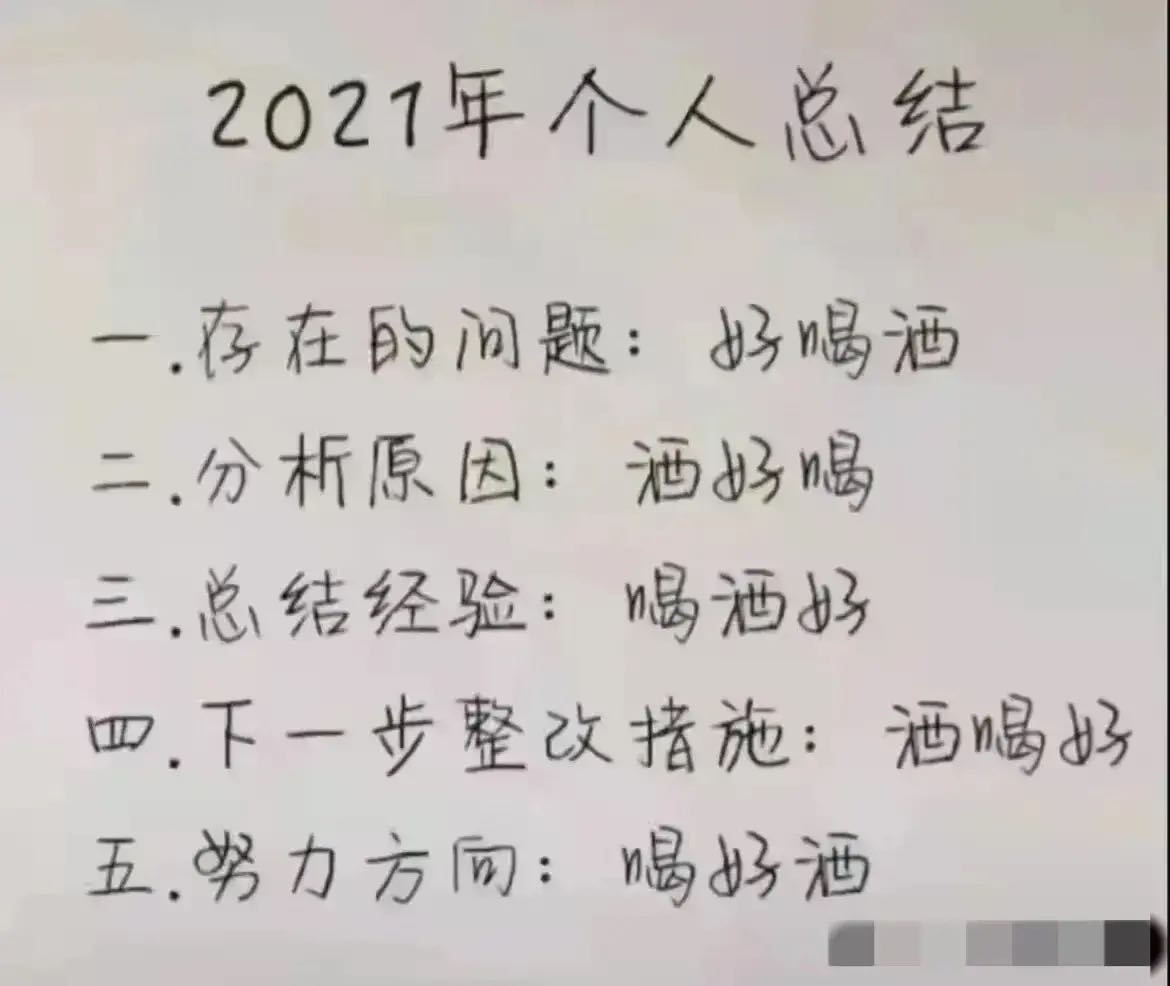 2021年个人总结
一.存在的问题：好喝酒
二.分析原因：酒好喝
三.总结经验：喝酒好
四.下一步整改措施：酒喝好
五.努力方向：喝好酒